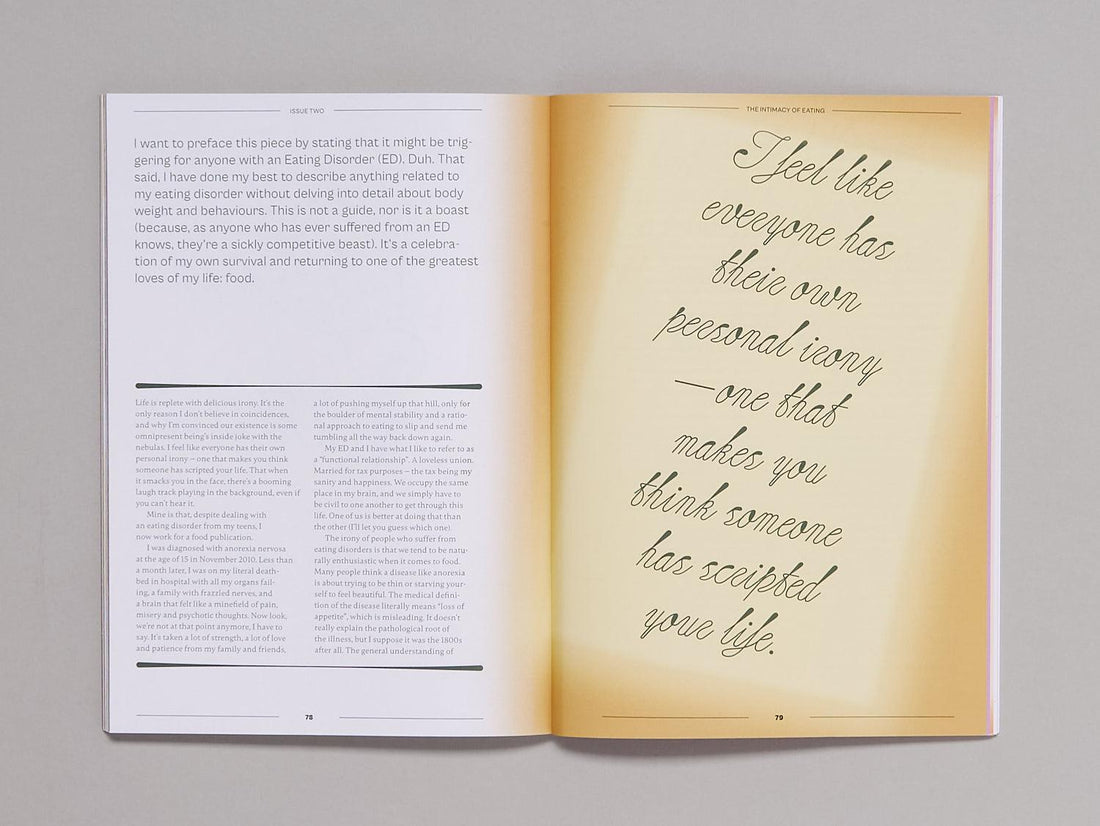 ISSUE TWO
I want to preface this piece by stating that it might be trig-
gering for anyone with an Eating Disorder (ED). Duh. That
said, I have done my best to describe anything related to
my eating disorder without delving into detail about body
weight and behaviours. This is not a guide, nor is it a boast
(because, as anyone who has ever suffered from an ED
knows, they're a sickly competitive beast). It's a celebra-
tion of my own survival and returning to one of the greatest
loves of my life: food.
Life is replete with delicious irony. It's the
only reason I don't believe in coincidences,
and why I'm convinced our existence is some
omnipresent being's inside joke with the
nebulas. I feel like everyone has their own
personal irony – one that makes you think
someone has scripted your life. That when
it smacks you in the face, there's a booming
laugh track playing in the background, even if
you can't hear it.
Mine is that, despite dealing with
an eating disorder from my teens, I
now work for a food publication.
I was diagnosed with anorexia nervosa
at the age of 15 in November 2010. Less than
a month later, I was on my literal death-
bed in hospital with all my organs fail-
ing, a family with frazzled nerves, and
a brain that felt like a minefield of pain,
misery and psychotic thoughts. Now look,
we're not at that point anymore, I have to
say. It's taken a lot of strength, a lot of love
and patience from my family and friends,
a lot of pushing myself up that hill, only for
the boulder of mental stability and a ratio-
nal approach to eating to slip and send me
tumbling all the way back down again.
My ED and I have what I like to refer to as
a "functional relationship". A loveless union.
Married for tax purposes – the tax being my
sanity and happiness. We occupy the same
place in my brain, and we simply have to
be civil to one another to get through this
life. One of us is better at doing that than
the other (I'll let you guess which one).
The irony of people who suffer from
eating disorders is that we tend to be natu-
rally enthusiastic when it comes to food.
Many people think a disease like anorexia
is about trying to be thin or starving your-
self to feel beautiful. The medical defini-
tion of the disease literally means "loss of
appetite", which is misleading. It doesn't
really explain the pathological root of
the illness, but I suppose it was the 1800s
after all. The general understanding of
78
THE INTIMACY OF EATING
I feel like
everyone has
their own
personal irony
—one that
makes you
think someone
has scripted
your life.
79